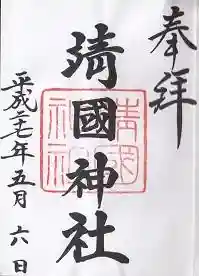 奉拝
靖國神社
平成二十七年五月六日
靖國神社